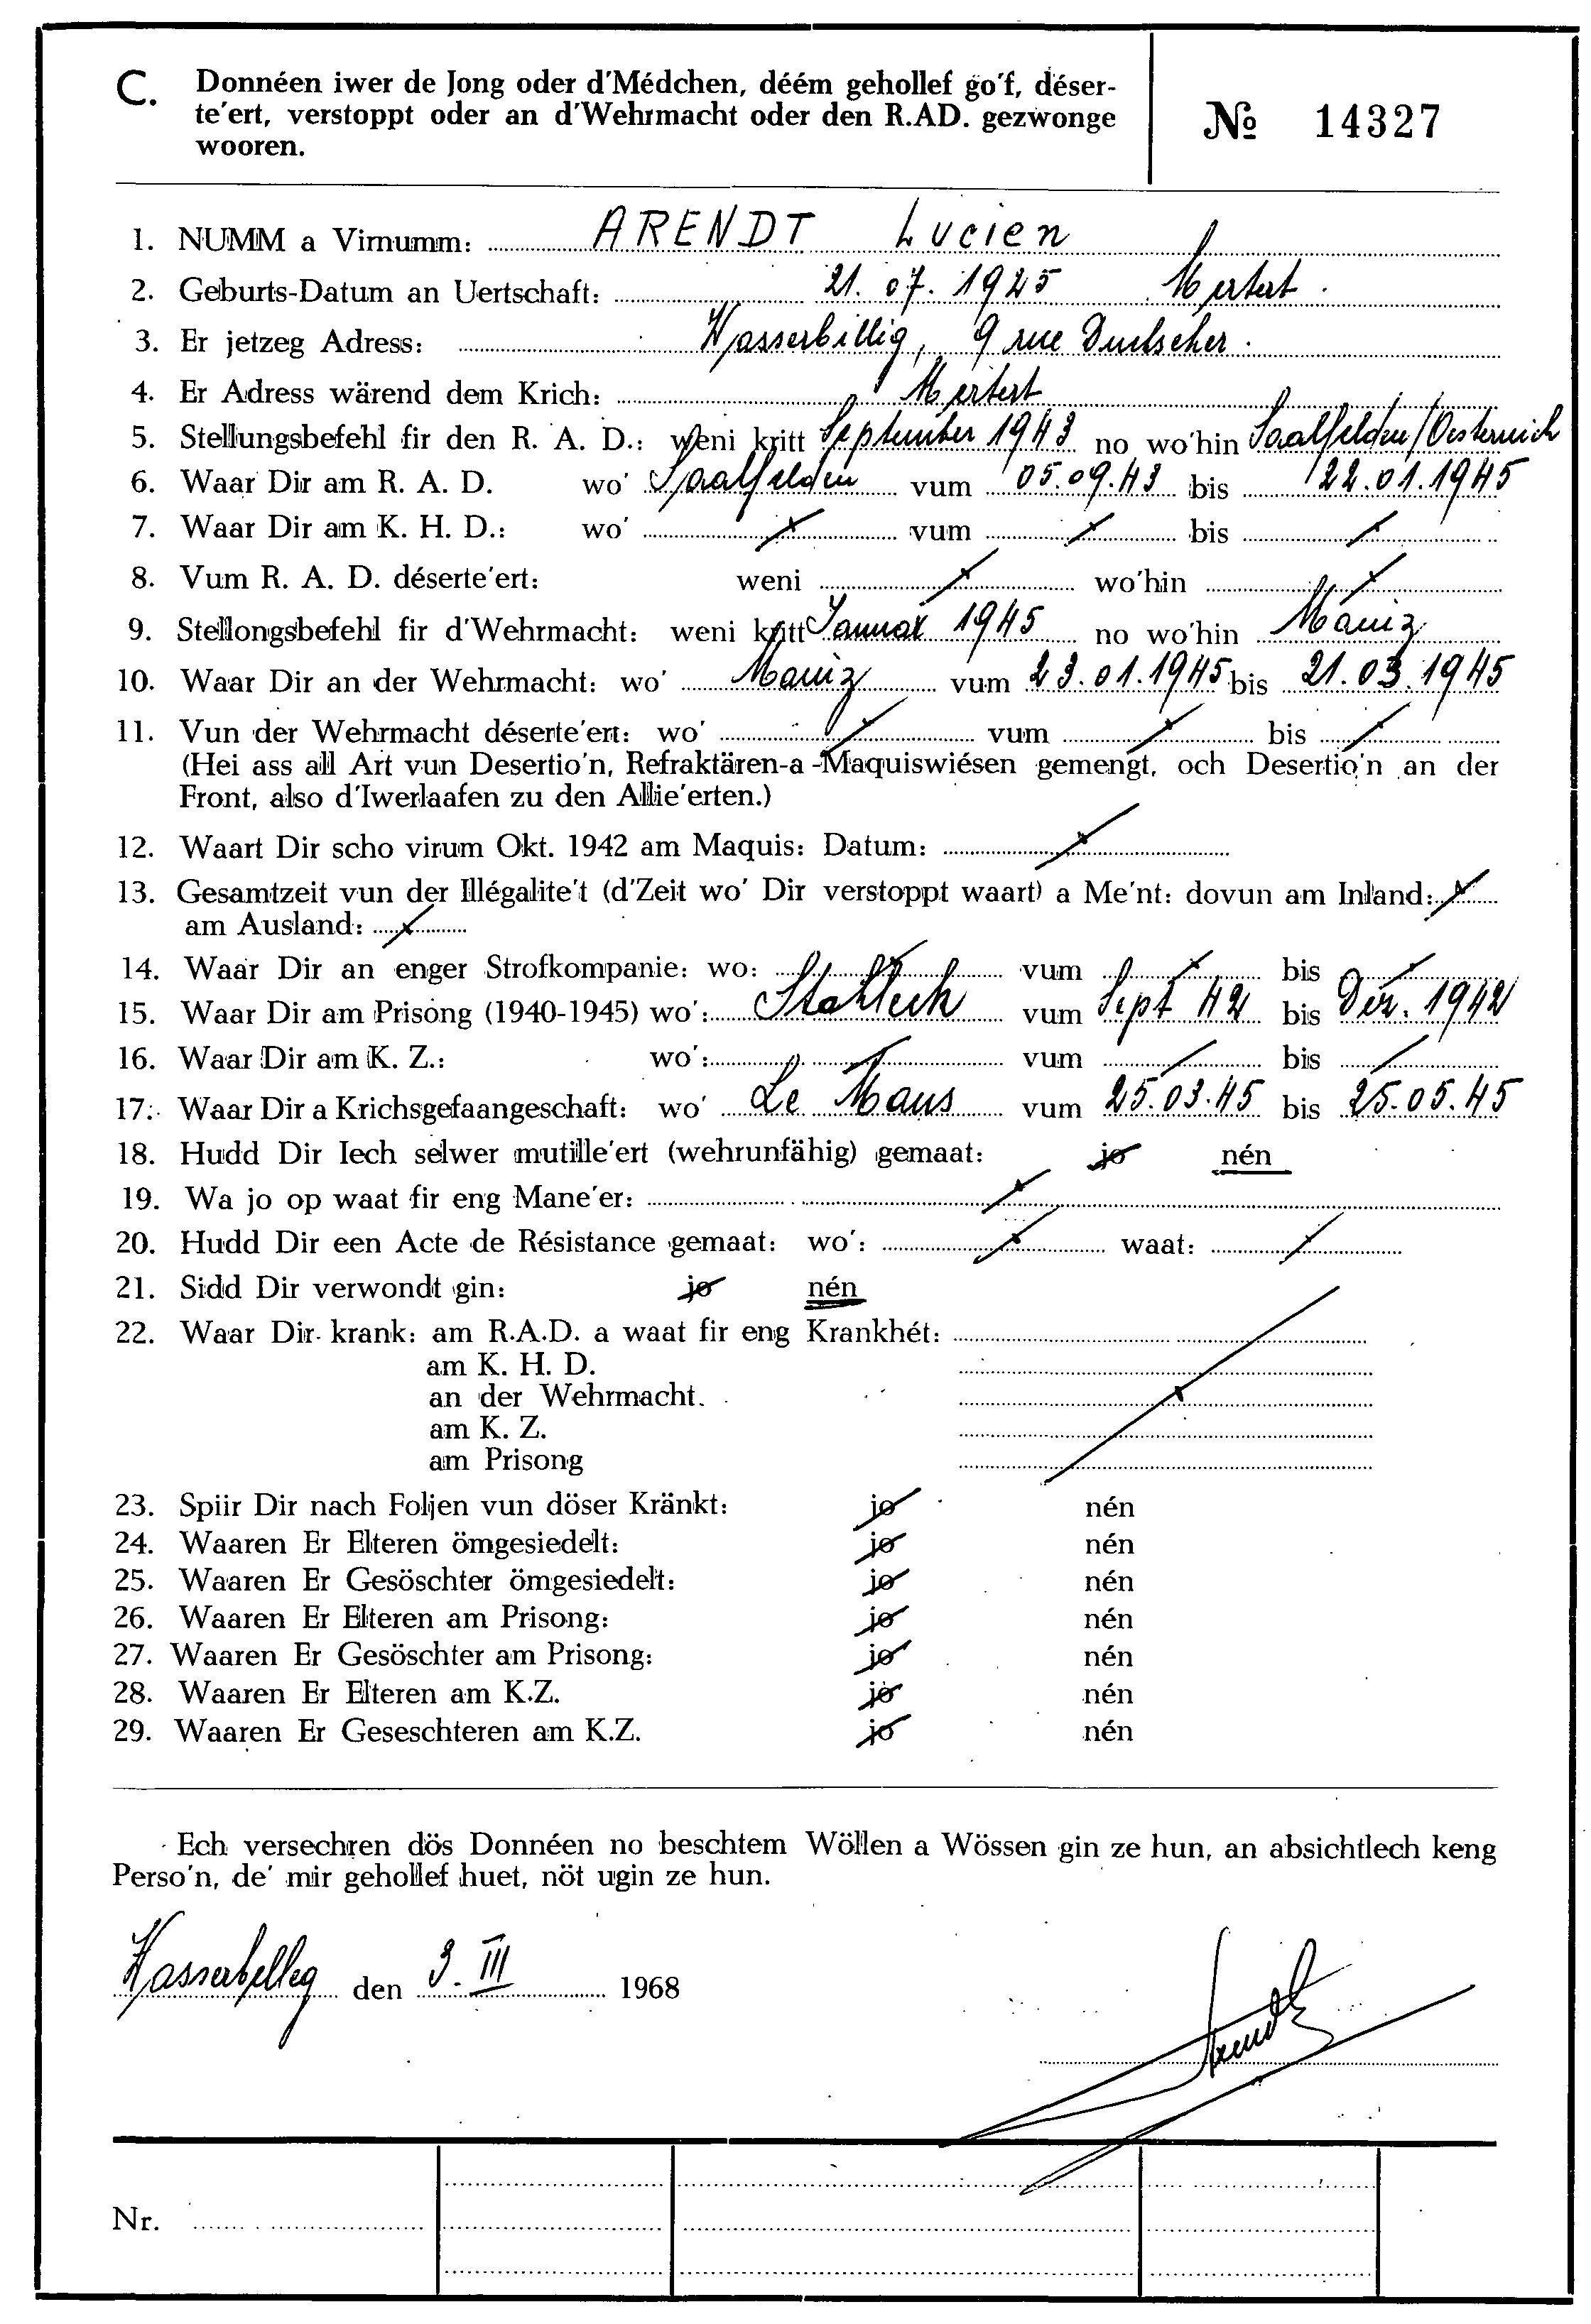 C. Donnéen iwer de Jong oder d'Médchen, déém gehollef go'f, déser-
te'ert, verstoppt oder an d'Wehrmacht oder den R.AD. gezwonge
wooren.
№ 14327
1. NUMM a Virnumm: ARENDT Lucien
2. Geburts-Datum an Uertschaft: 21.07.1925 Mertert.
3. Er jetzeg Adress: Wasserbillig, 9 rue Duchscher.
4. Er Adress wärend dem Krich: Mertert
5. Stellungsbefehl fir den R. A. D.: weni kritt September 1943 no wo'hin Saalfelden/Oesterreich
6. Waar Dir am R. A. D. wo' Saalfelden vum 05.09.43 bis 22.01.1945
7. Waar Dir am K. H. D.: wo' vum bis
8. Vum R. A. D. déserte'ert: weni wo'hin
9. Stellongsbefehl fir d'Wehrmacht: weni kritt Januar 1945 no wo'hin Mainz
10. Waar Dir an der Wehrmacht: wo' Mainz vum 23.01.1945 bis 21.03.1945
11. Vun der Wehrmacht déserte'ert: wo' vum bis
(Hei ass all Art vun Desertio'n, Refraktären-a-Maquiswiésen gemengt, och Desertio'n an der
Front, also d'Iwerlaafen zu den Allie'erten.)
12. Waart Dir scho virum Okt. 1942 am Maquis: Datum:
13. Gesamtzeit vun der Illégalite't (d'Zeit wo' Dir verstoppt waart) a Me'nt: dovun am Inland:
am Ausland:
14. Waar Dir an enger Strofkompanie: wo: vum bis
15. Waar Dir am Prisong (1940-1945) wo': Stahleck vum Sept 42 bis Dez. 1942
16. Waar Dir am K. Z.: wo': vum bis
17. Waar Dir a Krichsgefaangeschaft: wo' Le Mans vum 25.03.45 bis 25.05.45
18. Hudd Dir Iech selwer mutille'ert (wehrunfähig) gemaat: jo nén
19. Wa jo op waat fir eng Mane'er:
20. Hudd Dir een Acte de Résistance gemaat: wo': waat:
21. Sidd Dir verwondt gin: jo nén
22. Waar Dir krank: am R.A.D. a waat fir eng Krankhét:
am K. H. D.
an der Wehrmacht.
am K. Z.
am Prisong
23. Spiir Dir nach Foljen vun döser Kränkt: jo nén
24. Waaren Er Elteren ömgesiedelt: jo nén
25. Waaren Er Gesöschter ömgesiedelt: jo nén
26. Waaren Er Elteren am Prisong: jo nén
27. Waaren Er Gesöschter am Prisong: jo nén
28. Waaren Er Elteren am K.Z. jo nén
29. Waaren Er Geseschteren am K.Z. jo nén
Ech versechren dös Donnéen no beschtem Wöllen a Wössen gin ze hun, an absichtlech keng
Perso'n, de' mir gehollef huet, nöt ugin ze hun.
Wasserbillig den 3. III 1968
Arendt
Nr.